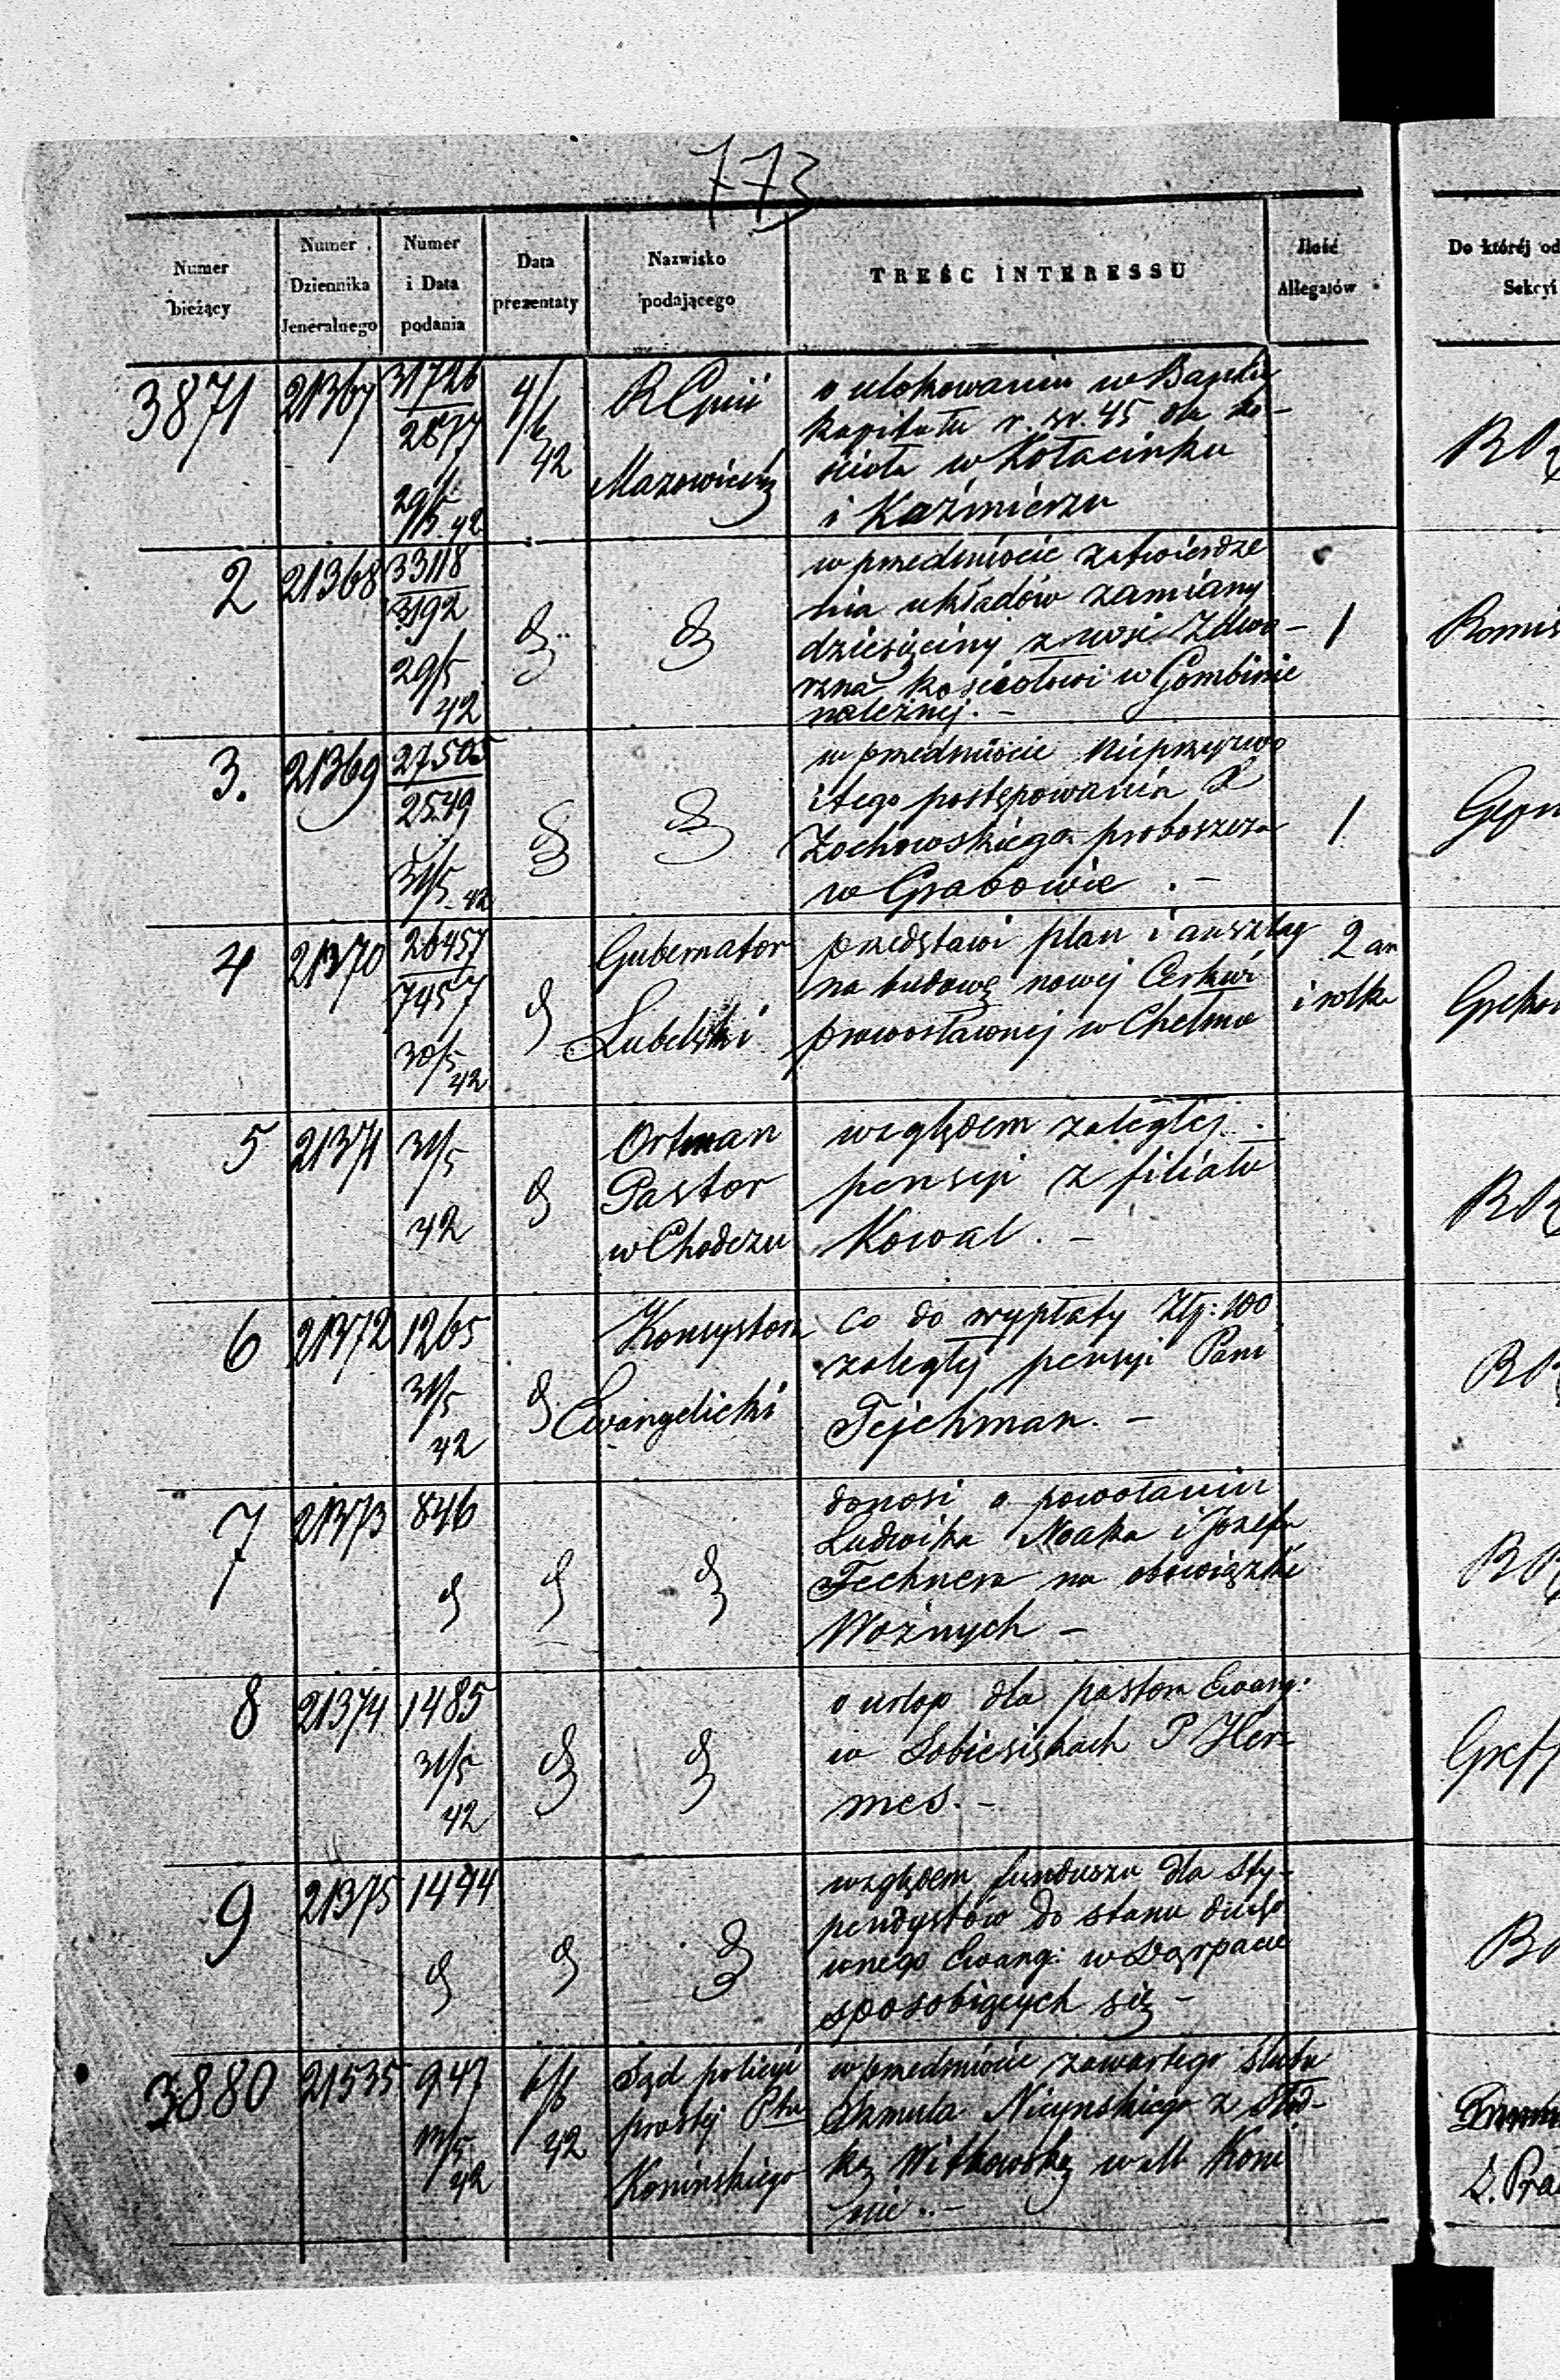 773
Numer bieżący
Numer Dziennika Jeneralnego
Numer i Data podania
Data prezentaty
Nazwisko podającego
TREŚĆ INTERESSU
Ilość Allegatów
Do któréj od
Sekcyi
3871
21367
31726
2877
29/5 42
4/6 42
R Gŭii
Mazowieckij
o ulokowaniu w Banku
kapitału r. sr. 45 dla ko-
ścioła w Kołacinku
i Kaźmierzu
2
21368
33118
3192
29/5
42
w przedmiocie zatwierdze
nia układów zamiany
dziesięciny z wsi Zdwo-
rzna kościołowi w Gombinie
należnej. -
1
3.
21369
27505
2549
31/5 42
w przedmiocie nieprzyzwo
itego postępowania X
Zochowskiego proboszcza
w Grabowie . -
1
4
21370
26457
7457
30/5 42
Gubernator
Lubelski
przedstawi plan i anszlag
na budowę nowej Cerkwi
prawosławnej w Chełmie
2 an
i rolka
5
21371
31/5
42
Ortman
Pastor
w Chodczu
względem zaległej
pensyi z filiału
Kowal. -
6
21372
1265
31/5
42
Konsystorz
Ewangelicki
Co do wypłaty Złp: 100
zaległej pensyi Pani
Tejchman. -
7
21373
846
donosi o powołaniu
Ludwika Noaka i Józefa
Fechnera na obowiązki
Woźnych -
8
21374
1485
31/5
42
o urlop dla pastora Ewang.
w Sobiesiskach P Her-
mes. -
9
21375
1494
względem funduszu dla Sty-
pendystów do stanu ducho
wnego Ewang: w Dorpacie
sposobiących się -
3880
21535
947
17/5
42
6/6
42
Sąd policyi
prostej Ptu
Konińskiego
w przedmiocie zawartego ślubu
Szmula Nieynskiego z
Witkowską w M. Koni
nie. -